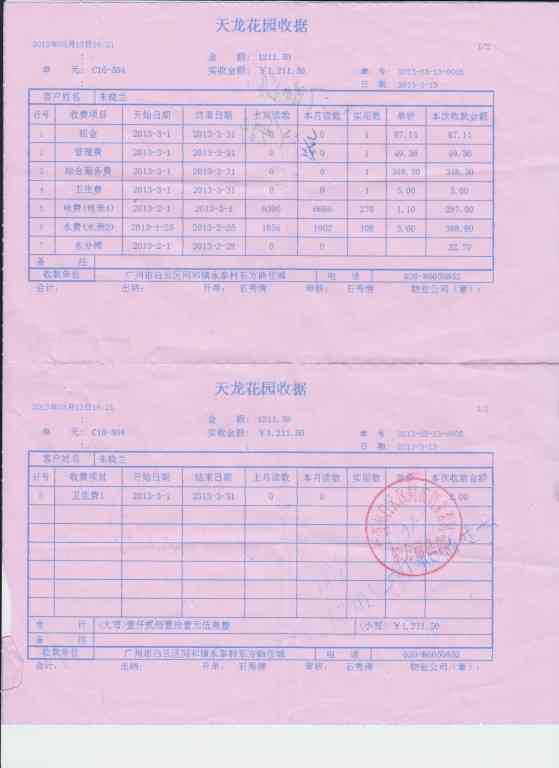 天龙花园收据
2013年03月13日16:21
1/2
金 额: 1211.50
单 元: C10-504
实收金额: ￥1,211.50
单 号 2013-03-13-0005
日 期 2013-3-13
客户姓名 朱晓兰
行号 收费项目 开始日期 结束日期 上月读数 本月读数 实用数 单价 本次收款金额
1 租金 2013-3-1 2013-3-31 0 0 1 87.11 87.11
2 管理费 2013-3-1 2013-3-31 0 0 1
3 综合服务费 2013-3-1 2013-3-31 0 0 1
4 卫生费 2013-3-1 2013-3-31 0 0 1 5.00 5.00
5 电费(电表4) 2013-2-1 2013-3-1 270 1.10 297.00
6 水费(水表2) 2013-1-25 2013-2-25 108
7 水分摊 2013-2-1 2013-2-28 0 0 32.70
备 注
收款单位 广州市白云区同和镇永泰村东方 电 话
会计: 出纳: 开单: 石秀倩 审核: 石秀倩 物业公司(章):
天龙花园收据
2013年03月13日16:21
金 额: 1211.50
单 元: C10-504
实收金额: ￥1,211.50
单 号 2013-03-13-0005
日 期 2013-3-13
客户姓名 朱晓兰
行号 收费项目 开始日期 结束日期 上月读数 本月读数 实用数 单价 本次收款金额
8 卫生费1 2013-3-1 2013-3-31 0 0
合 计 (大写)壹仟贰佰壹拾壹元伍角整 (小写)￥1,211.50
备 注
收款单位 广州市白云区同和镇永泰村东方 电 话
会计: 出纳: 开单: 石秀倩 审核: 石秀倩 物业公司(章):